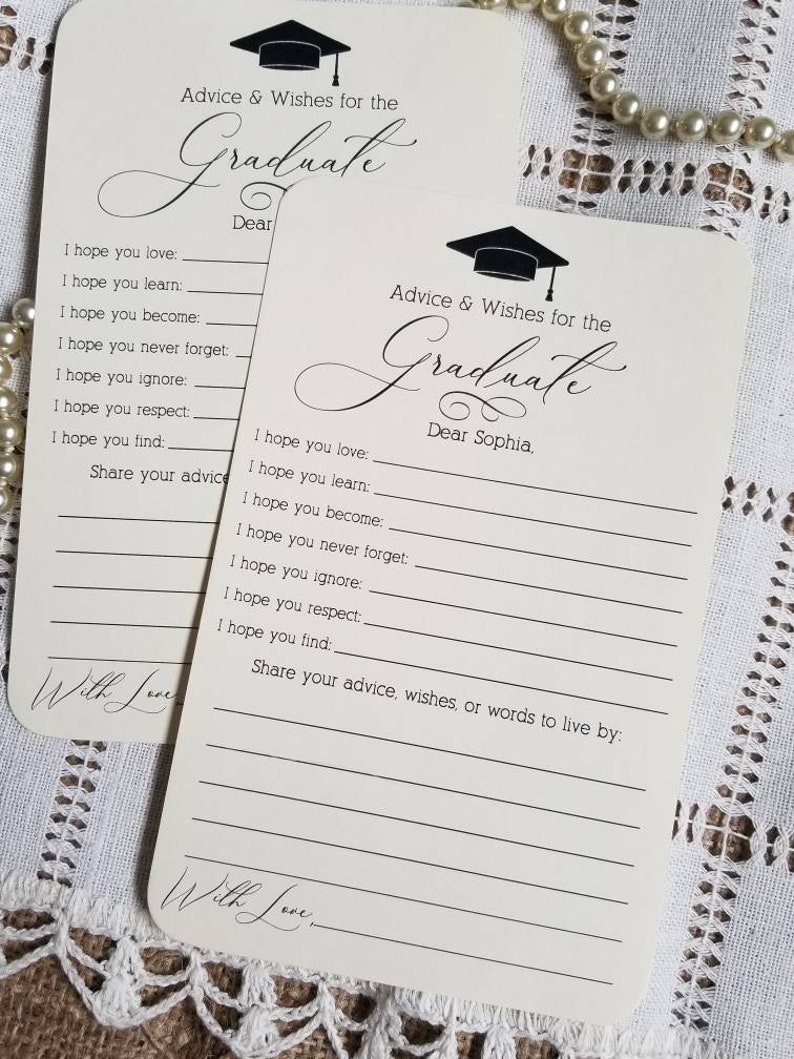 Advice & Wishes for the
Graduate
Dear
I hope you love:
I hope you learn:
I hope you become:
I hope you never forget:
I hope you ignore:
I hope you respect:
I hope you find:
Share your advice
With Love,
Advice & Wishes for the
Graduate
Dear Sophia,
I hope you love:
I hope you learn:
I hope you become:
I hope you never forget:
I hope you ignore:
I hope you respect:
I hope you find:
Share your advice, wishes, or words to live by:
With Love,